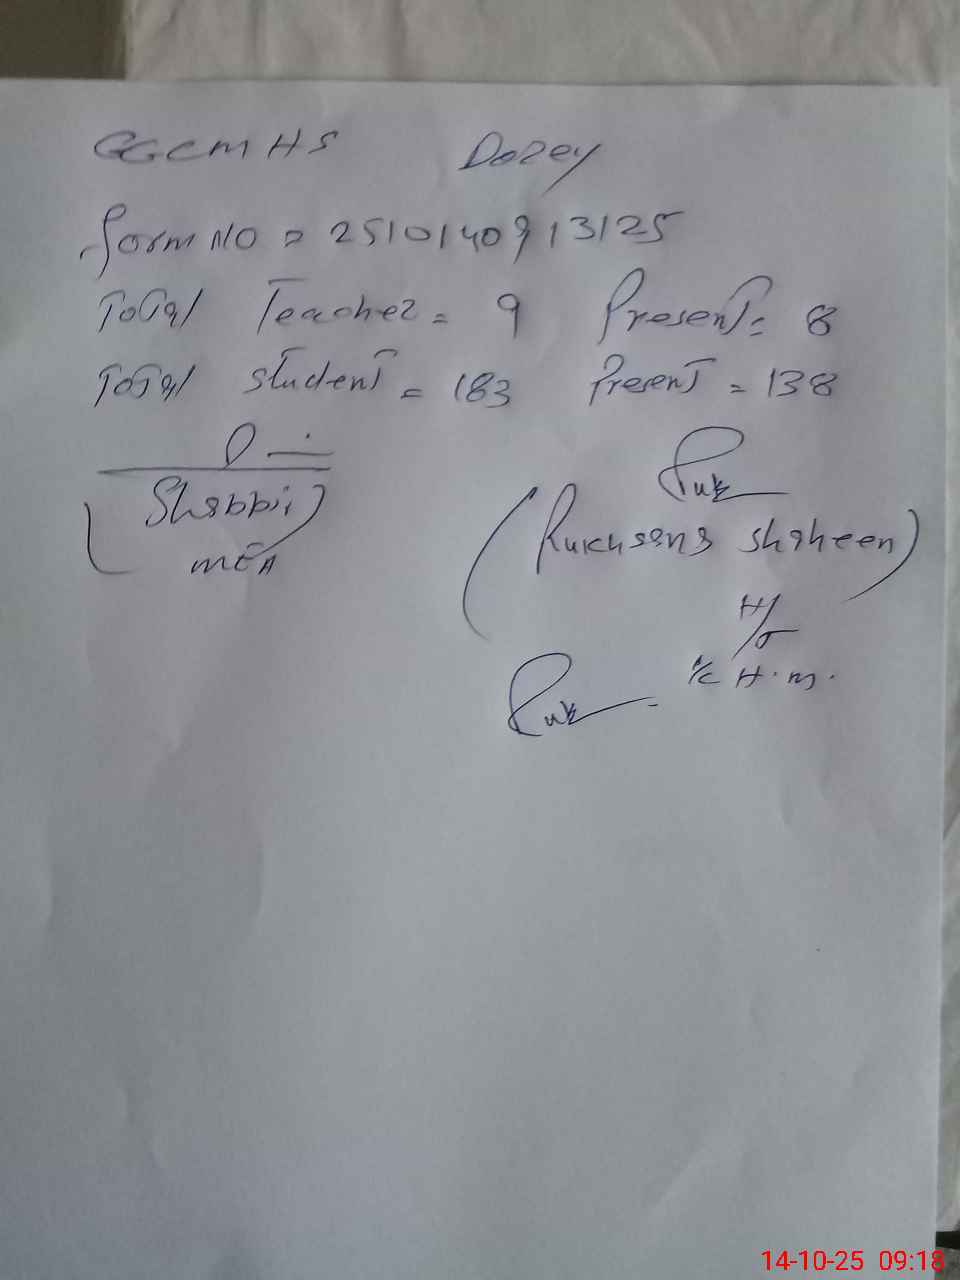 GGCMHS Dorey
Form NO = 2510140913125
Total Teacher = 9 Present = 8
Total student = 183 Present = 138
(Shabbir)
MEA
Ruk
(Rukhsana shaheen)
I/C H.M.
Ruk
14-10-25 09:18